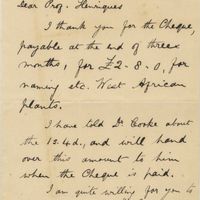 Dear Prof. Henriques
I thank you for the Cheque,
payable at the end of three
months, for £2-8-0, for
naming etc. West African
plants.
I have told Dr Cooke about
the 12.4d., and will hand
over this amount to him
when the Cheque is paid.
I am quite willing for you to